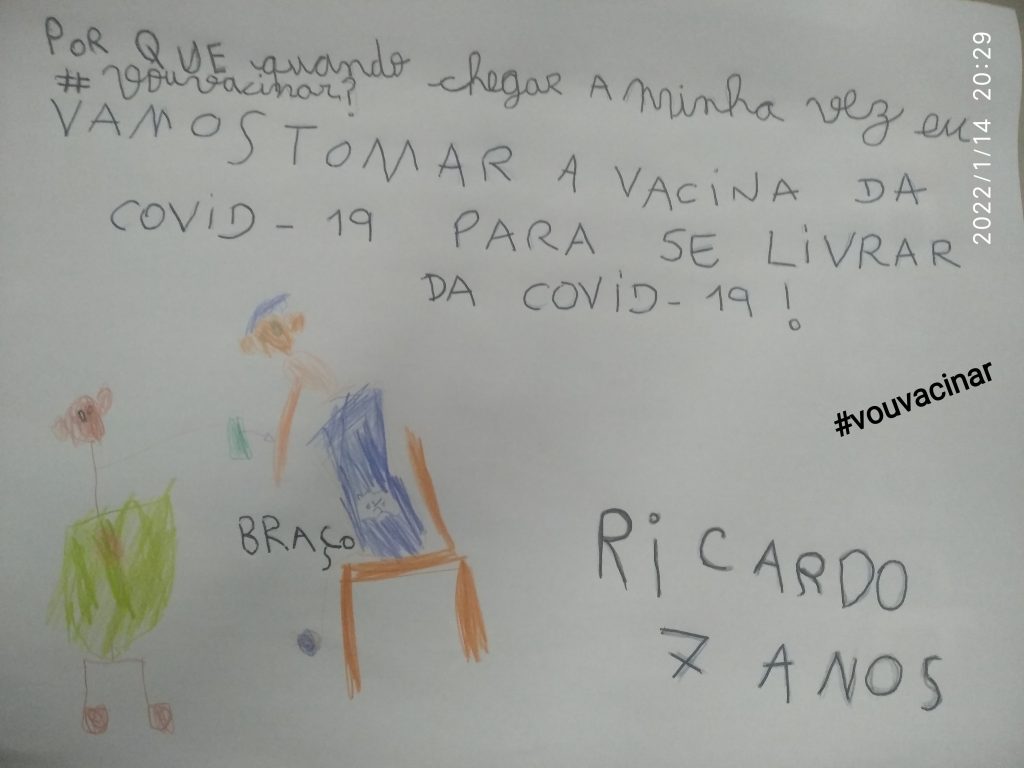 POR QUE quando chegar A minha vez eu
# vouvacinar?
VAMOS TOMAR A VACiNA DA
COViD - 19 PARA SE LiVRAR
DA COViD - 19 !
#vouvacinar
BRAÇO
RiCARDO
7 ANOS
2022/1/14 20:29